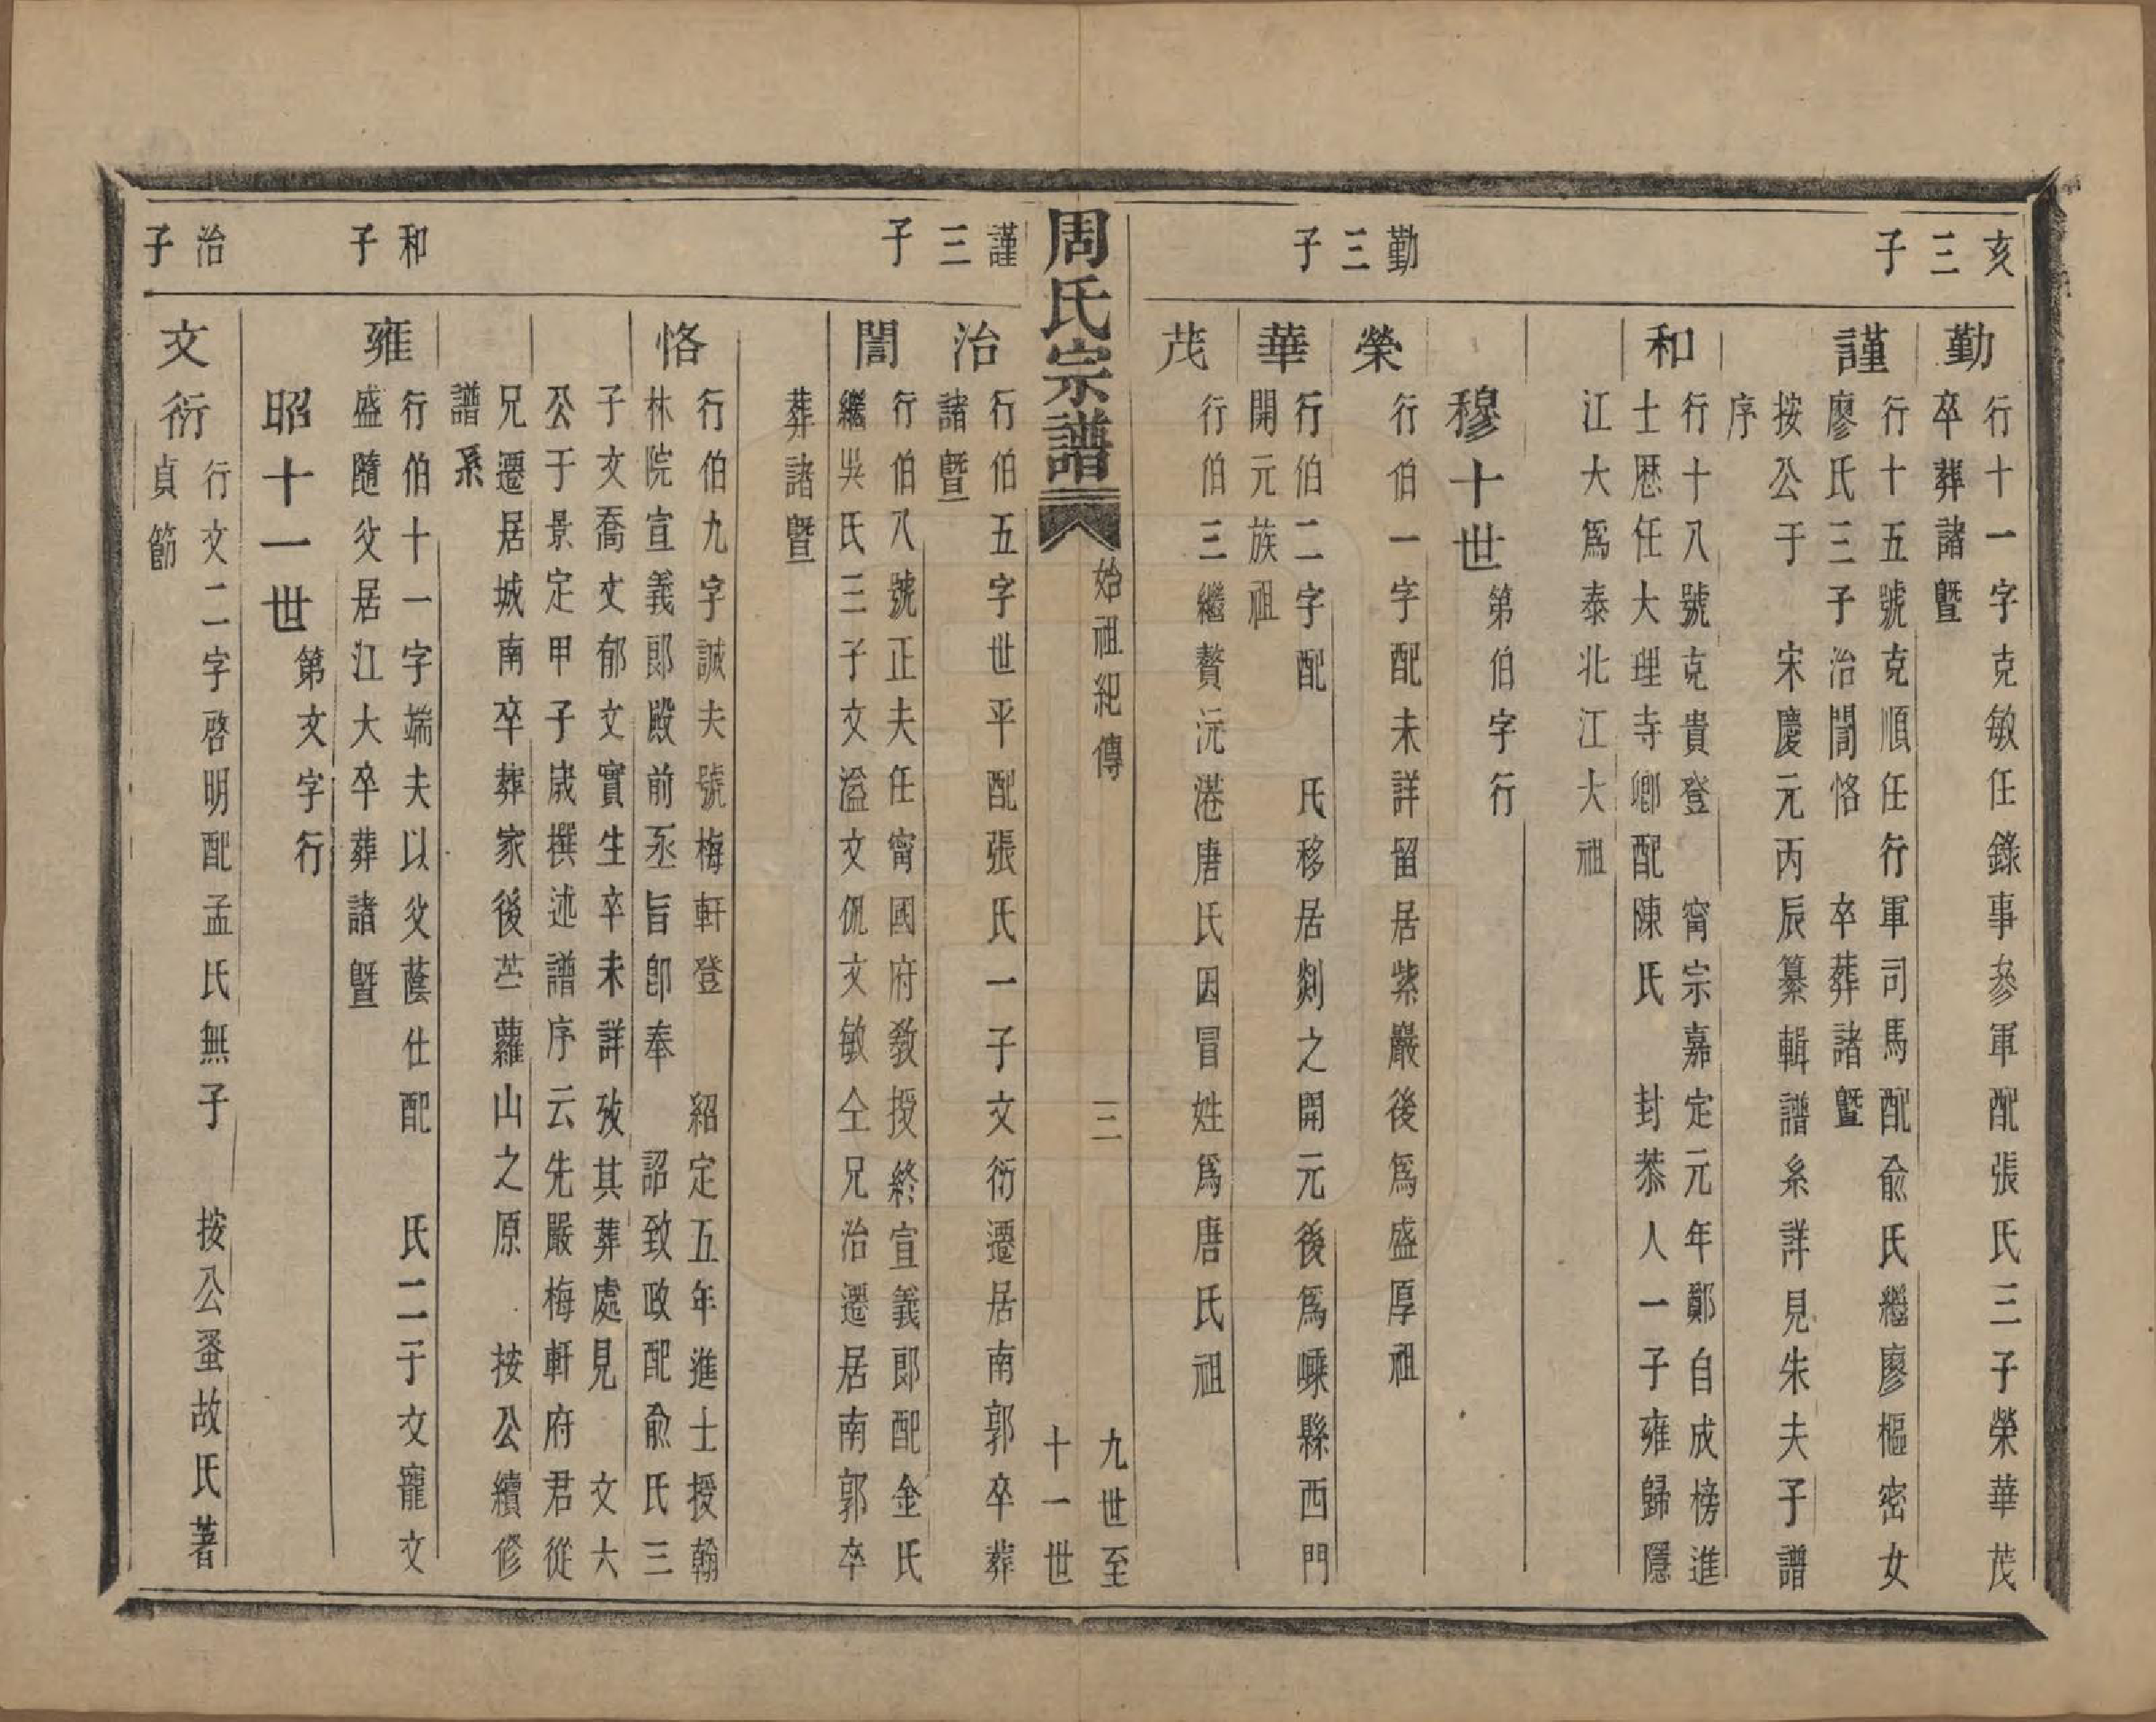 亥三子
勤
行十一字克敏任錄事參軍配張氏三子榮華茂
卒葬諸暨
謹
行十五號克順任行軍司馬配俞氏繼廖樞密女
廖氏三子治誾恪　卒葬諸暨
按公于　宋慶元丙辰纂輯譜系詳見朱夫子譜
序
和
行十八號克貴登　甯宗嘉定元年鄭自成榜進
士歷任大理寺卿配陳氏　封恭人一子雍歸隱
江大爲泰北江大祖
穆十世第伯字行
勤三子
榮
行伯一字配未詳留居紫巖後爲盛厚祖
華
行伯二字配　氏移居剡之開元後爲嵊縣西門
開元族祖
茂
行伯三繼贅沅港唐氏因冒姓爲唐氏祖
周氏宗譜
始祖紀傳　三　九世至
十一世
謹三子
治
行伯五字世平配張氏一子文衍遷居南郭卒葬
諸暨
誾
行伯八號正夫任甯國府教授終宣義郎配金氏
繼吳氏三子文溢文侃文敏仝兄治遷居南郭卒
葬諸暨
恪
行伯九字誠夫號梅軒登　紹定五年進士授翰
林院宣義郎殿前丞旨卽奉　詔致政配俞氏三
子文喬文郁文實生卒未詳攷其葬處見　文大
公于景定甲子歲撰述譜序云先嚴梅軒府君從
兄遷居城南卒葬家後苎蘿山之原　按公續修
譜系
和子
雍
行伯十一字端夫以父蔭仕配　氏二子文寵文
盛隨父居江大卒葬諸暨
昭十一世第文字行
治子
文衍
行文二字啓明配孟氏無子　按公蚤故氏著
貞節